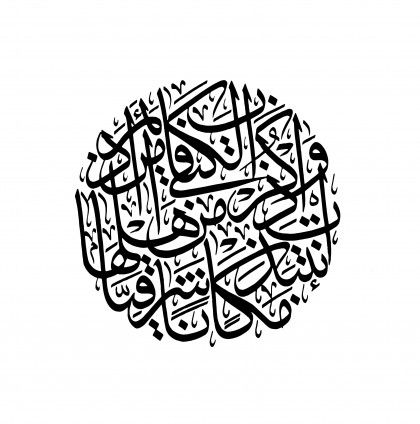 واذكر في الكتاب مريم إذ انتبذت من أهلها مكانًا شرقيًا